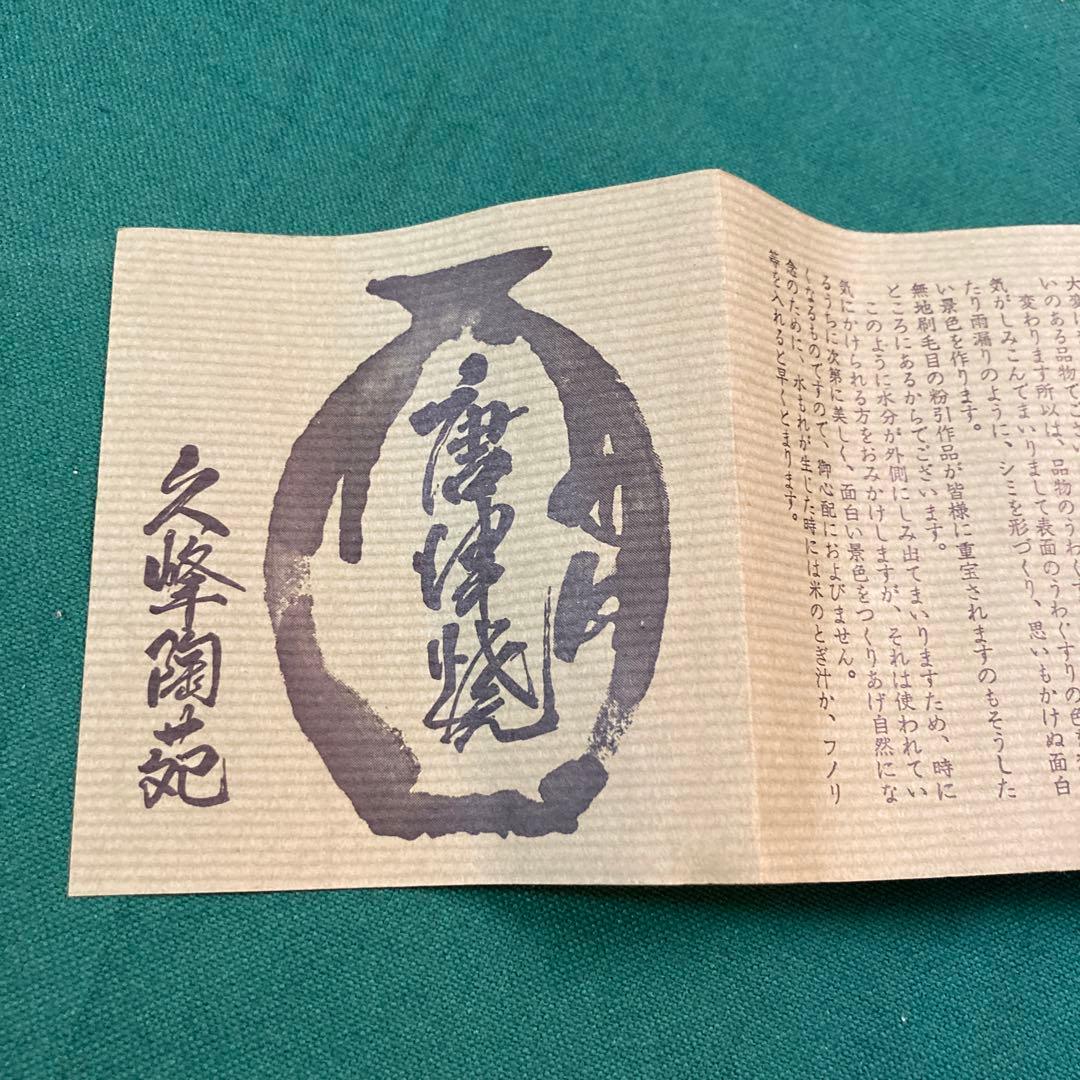 大変
いのある品物でござい
変わります所以は、品物のうわぐす
気がしみこんでまいりまして表面のうわぐすりの色
たり雨漏りのように、シミを形づくり、思いもかけぬ面白
い景色を作ります。
無地刷毛目の粉引作品が皆様に重宝されますのもそうした
ところにあるからでございます。
このように水分が外側にしみ出てまいりますため、時に
気にかけられる方をおみかけしますが、それは使われてい
るうちに次第に美しく、面白い景色をつくりあげ自然にな
くなるものですので、御心配におよびません。
念のために、水もれが生じた時には米のとぎ汁か、フノリ
等を入れると早くとまります。
唐津焼
久峰陶苑